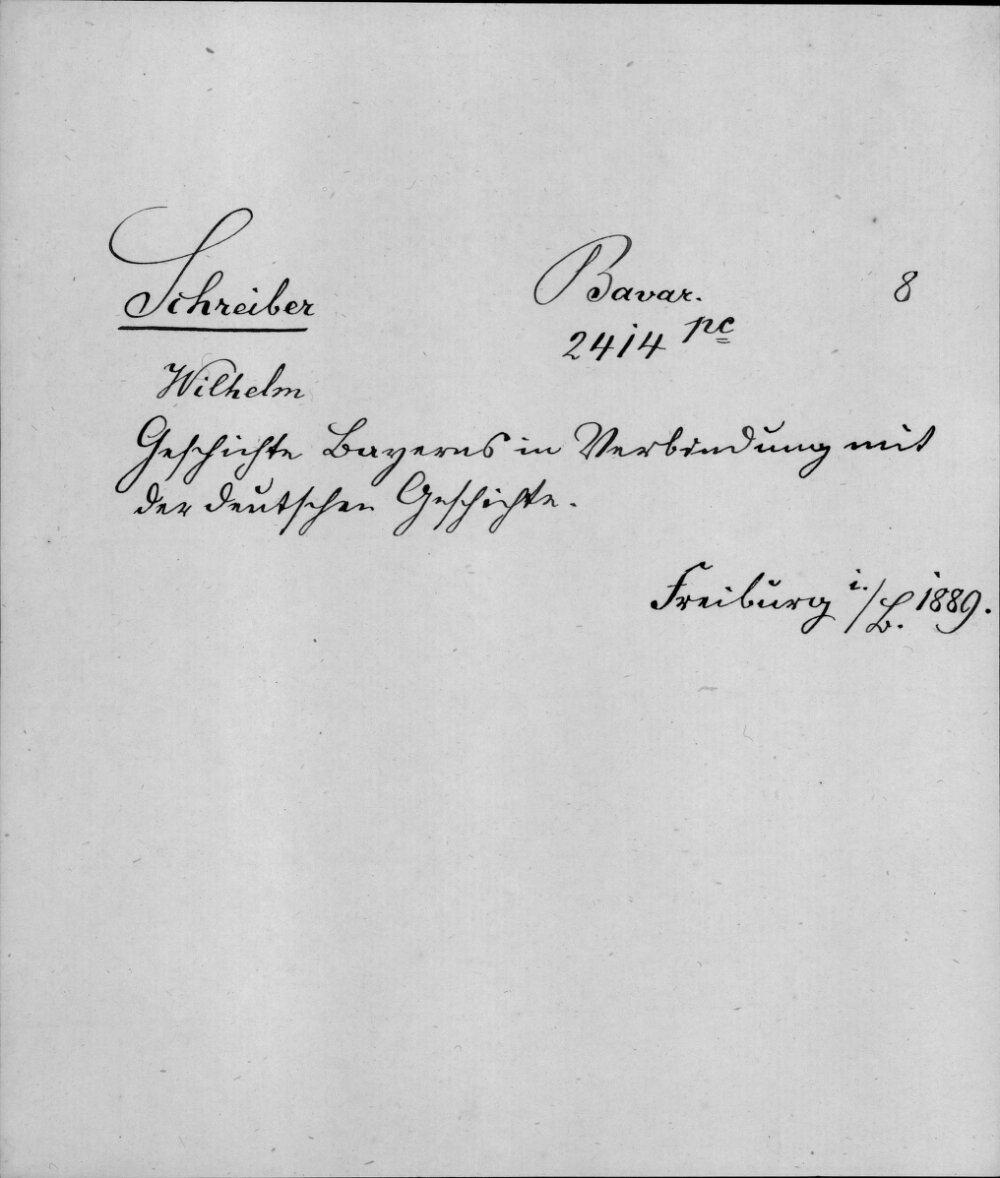 Schreiber Bavar. 8
2414 pc
Wilhelm
Geschichte Bayerns in Verbindung mit
der deutschen Geschichte.
Freiburg i./B. 1889.